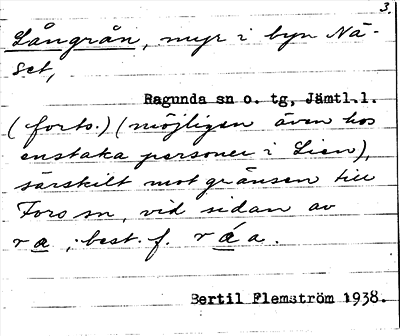 3.
Långrån, myr i byn Nä-
set,
Ragunda sn o. tg, Jämtl.l.
(forts.) (möjligen även hos
enstaka personer i Lien),
särskilt mot gränsen till
Fors sn, vid sidan av
ra, best. f. ráa.
Bertil Flemström 1938.